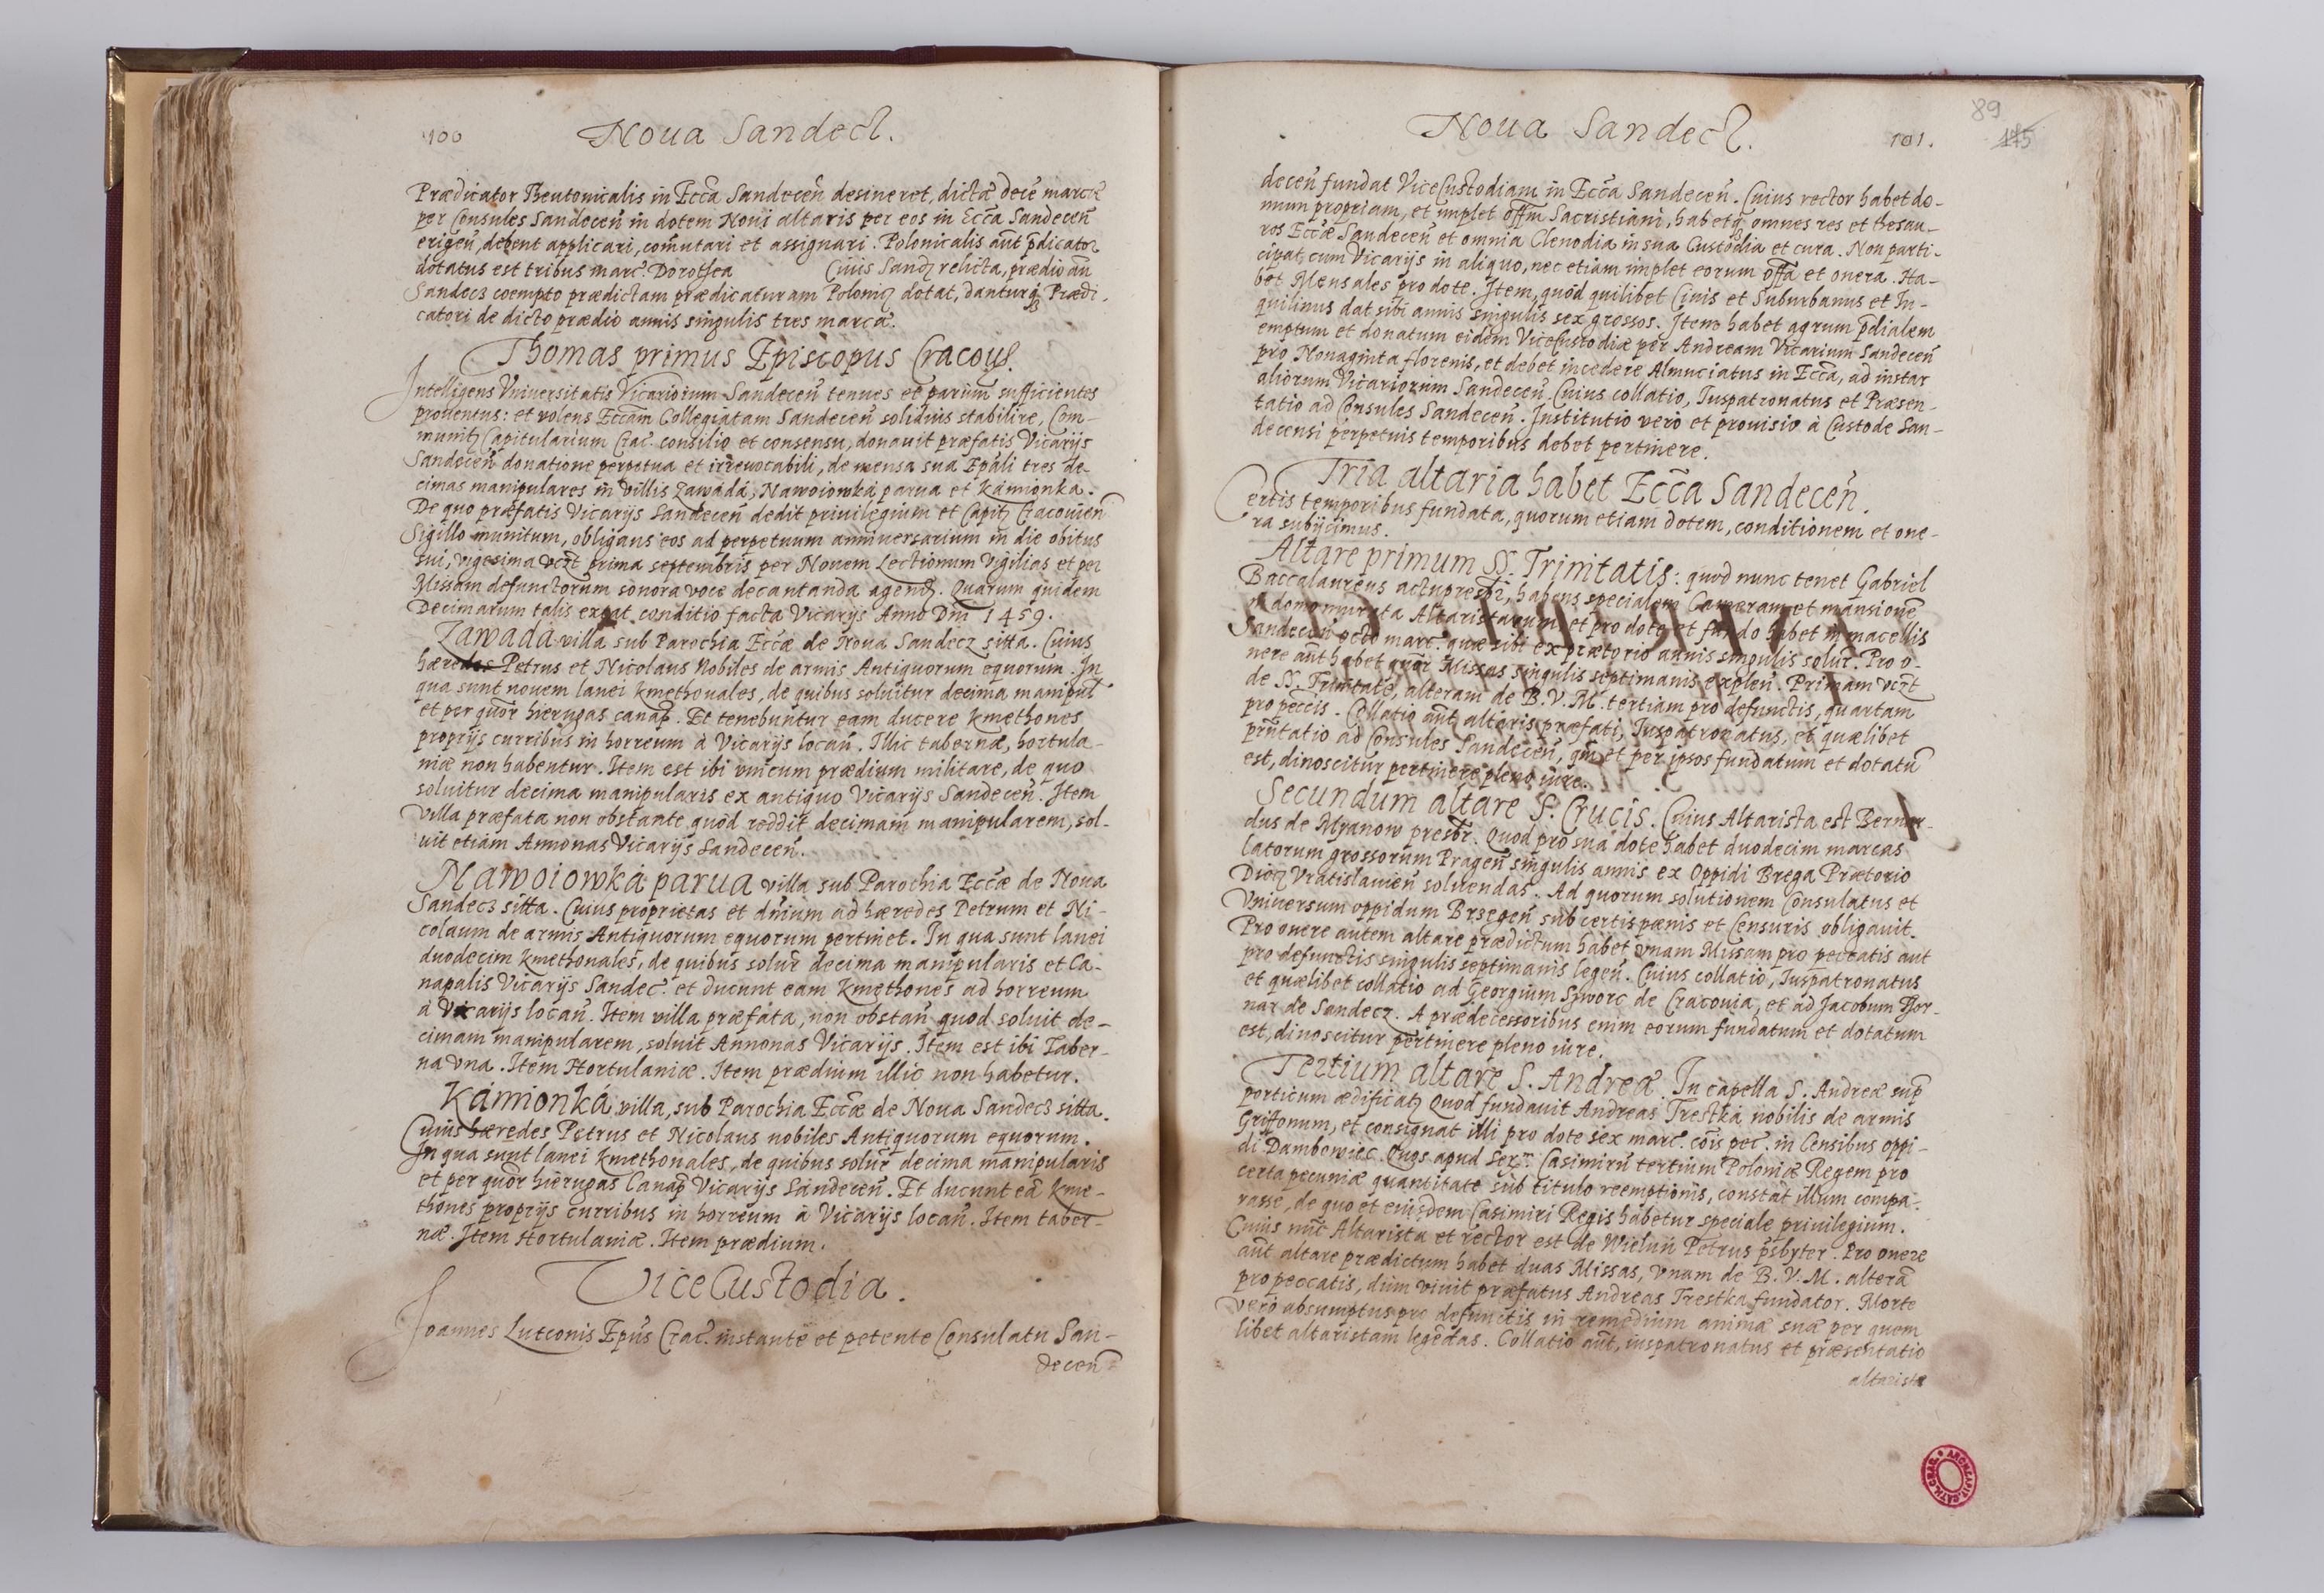 100 Noua Sandecz.
Prædicator Theutonicalis in Eccâ Sandeceñ desineret, dictæ decē marcæ
per Consules Sandeceñ in dotem Noui altaris per eos in Eccâ Sandeceñ
erigeñ, debent applicari, comutari et assignari. Polonicalis aūt p̄dicator
dotatus est tribus marc. Dorothea Ciuis Sandȝ relicta, prædio añ
Sandecz coempto prædictam prædicaturam Poloniȝ dotat, danturq̃ Prædi-
catori de dicto prædio annis singulis tres marcæ.
Thomas primus Episcopus Cracouȝ.
Intelligens Vniversitatis Vicariorum Sandeceñ tenues et parùm sufficientes
prouentus: et volens Eccām Collegiatam Sandeceñ solidiùs stabilire, Com-
munitȝ Capitularium Crac. consilio et consensu, donauit præfatis Vicarijs
Sandeceñ donatione perpetua et irreuocabili, de mensa sua Ep̄ali tres de-
cimas manipulares in villis Zawádá, Nawoiowká parua et Kámionka.
De quo præfatis Vicarijs Sandeceñ dedit priuilegium et Capitȝ Cracouieñ
Sigillo munitum, obligans eos ad perpetuum anniuersarium in die obitus
sui, vigesima vcȝt prima septembris per Nouem Lectionum vigilias et per
Missam defunctorum sonora voce decantanda agendȝ. Quarum quidem
Decimarum talis exṭat conditio facta Vicarijs Anno Dñi 1459.
Zawadá villa sub Parochia Eccæ de Noua Sandecz sitta. Cuius
hæredes Petrus et Nicolaus Nobiles de armis Antiquorum equorum. In
qua sunt nouem lanei kmethonales, de quibus soluitur decima manipul.
et per quōr hierugas canap. Et tenebuntur eam ducere Kmethones
proprijs curribus in horreum à Vicarijs locañ. Illic tabernæ, hortula-
niæ non habentur. Item est ibi vnicum prædium militare, de quo
soluitur decima manipularis ex antiquo Vicarijs Sandeceñ. Item
villa præfata non obstante quòd reddit decimam manipularem, sol-
uit etiam Annonas Vicarijs Sandeceñ.
Nawoiowká parua villa sub Parochia Eccæ de Noua
Sandecz sitta. Cuius proprietas et dñium ad hæredes Petrum et Ni-
colaum de armis Antiquorum equorum pertinet. In qua sunt lanei
duodecim Kmethonales, de quibus soluȓ decima manipularis et Ca-
napalis Vicarijs Sandec. et ducunt eam Kmethones ad horreum
à Vicarijs locañ. Item villa præfata, non obstañ quod soluit de-
cimam manipularem, soluit Annonas Vicarijs. Item est ibi Taber-
na vna. Item Hortulaniæ. Item prædium illic non habetur.
Kámionká villa, sub Parochia Eccæ de Noua Sandecz sitta.
Cuius hæredes Petrus et Nicolaus nobiles Antiquorum equorum.
In qua sunt lanei Kmethonales, de quibus soluȓ decima manipularis
et per quōr hierugas Canap Vicarijs Sandeceñ. Et ducunt eā Kme-
thones proprijs curribus in horreum à Vicarijs locañ. Item taber-
næ. Item Hortulaniæ. Item prædium.
ViceCustodia.
Joannes Lutconis Ep̄us Crac. instante et petente Consulatu San-
deceñ
Noua Sandecz. 101.
89
deceñ fundat ViceCustodiam in Eccâ Sandeceñ. Cuius rector habet do-
mun propriam, et implet offm Sacristiani, habetq̃ omnes res et thesau-
ros Eccæ Sandeceñ et omnia Clenodia in sua Custodia et cura. Non parti-
cipat cum Vicarijs in aliquo, nec etiam implet eorum offa et onera. Ha-
bet Mensales pro dote. Item, quòd quilibet Ciuis et Suburbanus et In-
quilinus dat sibi annis singulis sex grossos. Item habet agrum p̄dialem
emptum et donatum eidem ViceCustodiæ per Andream Vicarium Sandeceñ
pro Nonaginta florenis, et debet incedere Almuciatus in Eccâ, ad instar
aliorum Vicariorum Sandeceñ. Cuius collatio, Iuspatronatus et Præsen-
tatio ad Consules Sandeceñ. Institutio verò et prouisio à Custode San-
decensi perpetuis temporibus debet pertinere.
Tria altaria habet Eccâ Sandeceñ.
Certis temporibus fundata, quorum etiam dotem, conditionem et one-
ra subijcimus.
Altare primum SS. Trinitatis: quod nunc tenet Gabriel
Baccalaureus actu presbr, habens specialem Cameram et mansionē
in domo murata Altaristarum, et pro dote et fundo habet in macellis
Sandeceñ octo marc. quæ sibi ex prætorio annis singulis soluȓ. Pro o-
nere aūt habet quōr Missas singulis septimanis expleñ. Primam vcȝt
de SS. Trinitate, alteram de B.V.M. tertiam pro defunctis, quartam
pro peccīs. Collatio aūt altaris præfati, Iuspatronatus, et quælibet
p̄ntatio ad Consules Sandeceñ, qm̄ et per ipsos fundatum et dotatū
est, dinoscitur pertinere pleno iure.
Secundum altare S. Crucis. Cuius Altarista est Bernar-
dus de Myanow presbr. Quod pro sua dote habet duodecim marcas
latorum grossorum Prageñ singulis annis ex Oppidi Brega Prætorio
Diœcȝ Vratislauieñ soluendas. Ad quorum solutionem Consulatus et
Vniuersum oppidum Brzegeñ sub certis pœnis et Censuris obligauit.
Pro onere autem altare prædictum habet vnam Missam pro peccatis aut
pro defunctis singulis septimanis legeñ. Cuius collatio, Iuspatronatus
et quælibet collatio ad Georgium Szworc de Cracouia, et ad Jacobum Hor-
nar de Sandecz. A prædecessoribus enim eorum fundatum et dotatum
est, dinoscitur pertinere pleno iure.
Tertium altare S. Andreæ. In capella S. Andreæ sup
porticum ædificatȝ Quod fundauit Andreas Trestká nobilis de armis
Griffonum, et consignat illi pro dote sex marc. cōis pec. in Censibus oppi-
di Dambowiec. Quos apud Ser.m Casimirū tertium Poloniæ Regem pro
certa pecuniæ quantitate sub titulo reemptionis, constat illum compa-
rasse, de quo et eiusdem Casimiri Regis habetur speciale priuilegium.
Cuius nūc Altarista et rector est de Wielun Petrus p̄sbyter. Pro onere
aūt altare prædictum habet duas Missas, vnam de B.V.M. alterā
pro peccatis, dum viuit præfatus Andreas Trestka fundator. Morte
verò absumptus pro defunctis in remedium animæ suæ per quem
libet altaristam legēdas. Collatio aūt, iuspatronatus et præsentatio
altaristæ